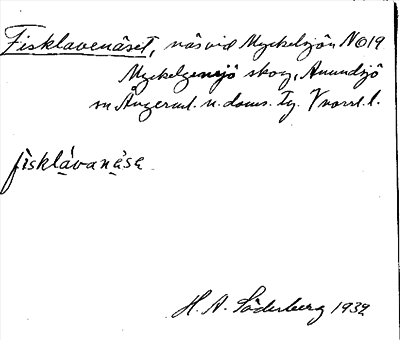 Fisklavenäset, näs vid Myckelsjön N019
Myckelgensjö skog, Anundsjö
sn Ångerml. n. doms. Tg. Vnorrl. l.
fisklávanä̀sa
H. A. Söderberg 1932